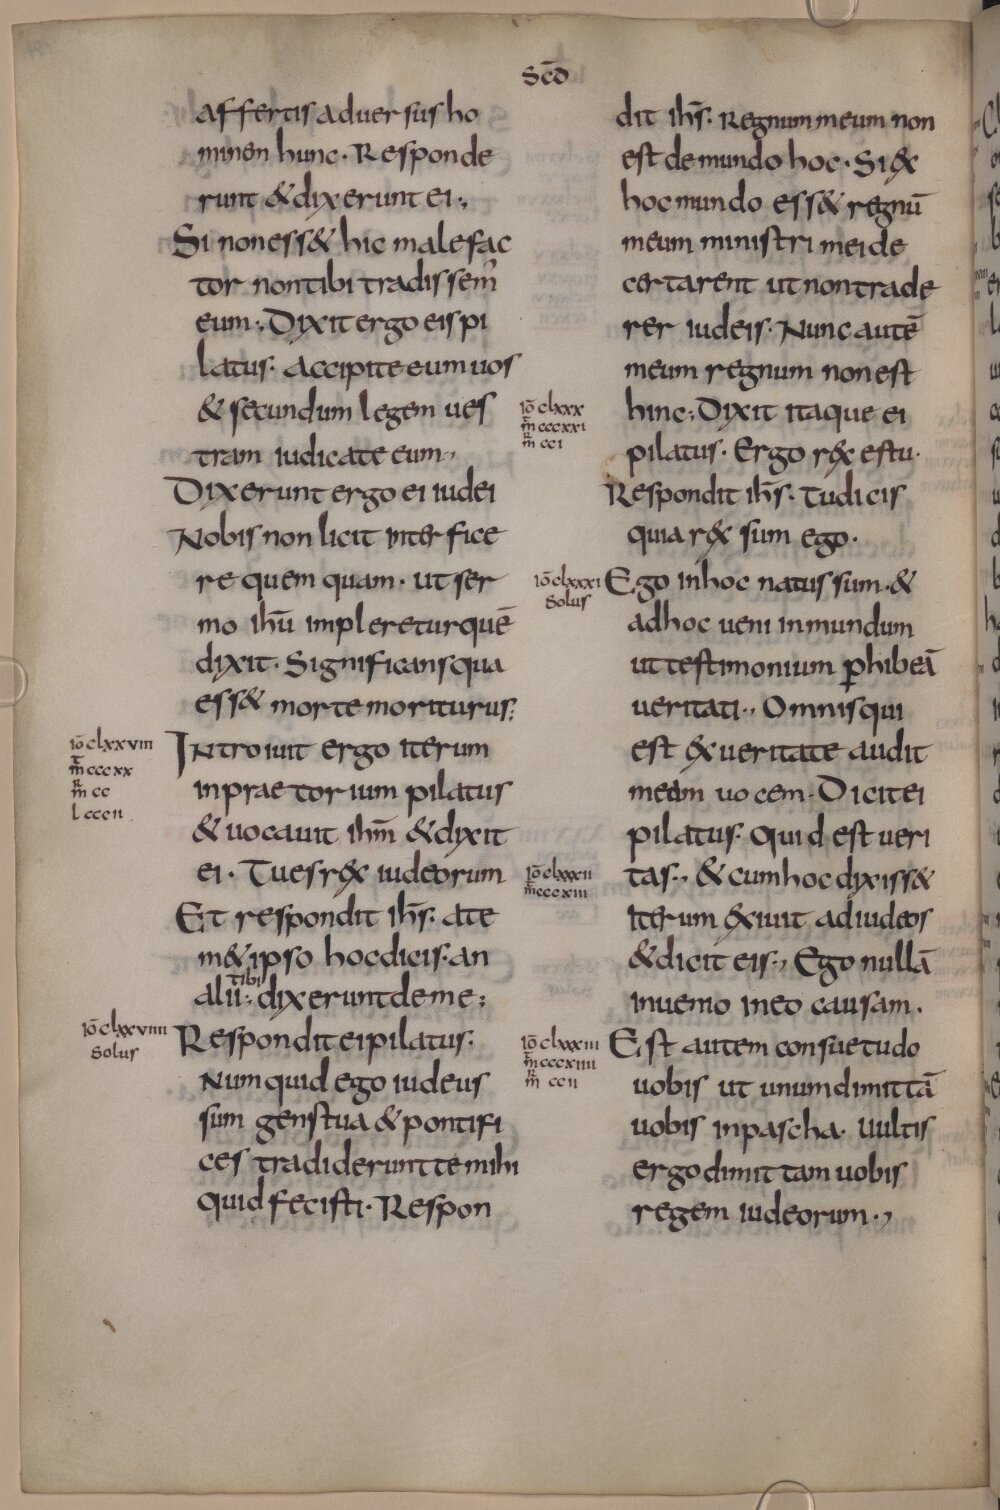 scđ
affertis aduersus ho
minen hunc · Responde
runt & dixerunt ei ·,
Si non ess& hic malefac
tor non tibi tradissem᷒
eum ·, Dixit ergo eis pi
latus · accipite eum uos
& secundum legem ues
tram iudicate eum ·,
Dixerunt ergo ei iudei
Nobis non licit interfice
re quem quam · ut ser
mo ihū impleretur quē
dixit · Significans qua
ess& morte moriturus ;
iō clxxviii
m̄ cccxx
m̄ cc
l cccii
Introiuit ergo iterum
in praetorium pilatus
& uocauit ihm̄ & dixit
ei · Tu es r&x iudeorum
Et respondit ihs̄ · a te
m&ipso hoc dicis · an
tibi
alii · dixerunt de me ;
iō clxxviiii
solus
Respondit ei pilatus ·
Numquid ego iudeus
sum gens tua & pontifi
ces tradiderunt te mihi
quid fecisti · Respon
dit ihs̄ · Regnum meum non
est de mundo hoc · Si &x
hoc mundo ess& regnū
meum ministri mei de
certarent ut non trade
rer iudeis · Nunc autē
meum regnum non est
iō clxxx
m̄ cccxxi
m̄ cci
hinc ·, Dixit itaque ei
pilatus · Ergo r&x es tu ·
Respondit ihs̄ · Tu dicis
quia r&x sum ego ·
iō clxxxi
solus
Ego in hoc natus sum · &
ad hoc ueni in mundum
ut testimonium ꝑhibeā
ueritati ·, Omnis qui
est &x ueritate audit
meam uocem · Dicit ei
pilatus · Quid est ueri
iō clxxxii
m̄ cccxiii
tas ·, & cum hoc dixiss&
iterum &xiuit ad iudeos
& dicit eis ·, Ego nullā
inuenio in eo causam ·
iō clxxxiii
m̄ cccxiiii
m̄ ccii
Est autem consuetudo
uobis ut unum dimittā
uobis in pascha · Uultis
ergo dimittam uobis
regem iudeorum ·,